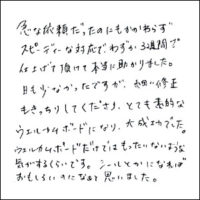 急な依頼だったのにもかかわらず
スピーディーな対応でわずか3週間で
仕上げて頂けて本当に助かりました。
日も少なかったですが、細い修正
もきっちりしてくださり、とても素的な
ウェルカムボードになり、大成功でした。
ウェルカムボードだけではもったいないような
気がするくらいです。シールとかになれば
おもしろいのになぁと思いました。